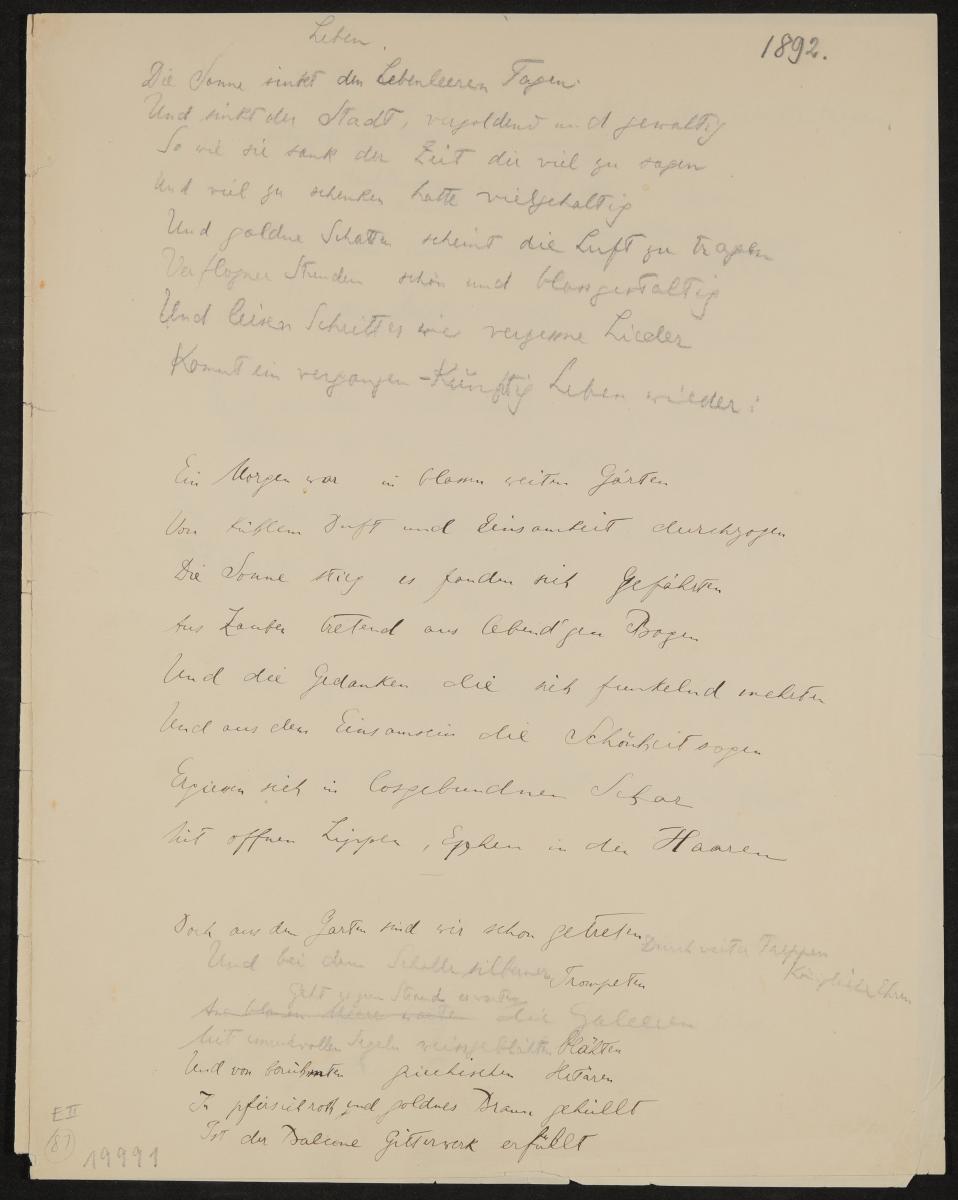 Leben.
1892.
Die Sonne sinkt den Lebenleeren Tagen
Und sinkt der Stadt, vergoldend und gewaltig
So wie sie sank der Zeit die viel zu sagen
Und viel zu schenken hatte vielgehaltig
Und goldne Schatten scheint die Luft zu tragen
Verflogner Stunden schön und blassgestaltig
Und leisen Schrittes wie vergessne Lieder
Kommt ein vergangen-Künftig Leben wieder:
Ein Morgen war in blassen weiten Gärten
Von kühlem Duft und Einsamkeit durchzogen
Die Sonne stieg es fanden sich Gefährten
Aus Zauber tretend aus lebend'gen Bogen
Und die Gedanken die sich funkelnd mehrten
Und aus dem Einsamsein die Schönheit sogen
Ergiessen sich in losgebundner Schar
Mit offnen Lippen, Epheu in den Haaren
Doch aus dem Garten sind wir schon getreten
Durch weite Treppen
Und bei dem Schalle silberner Trompeten
Königliche Ehren
Geht gegen Strand erwarten
Am blauen Meere warten die Galeeren
Mit Segeln weissgeblähten blähten
Und von berühmten griechischen Hetären
In pfirsichroth und goldnes Braun gehüllt
Ist der Balcone Gitterwerk erfüllt
E II
81
19991